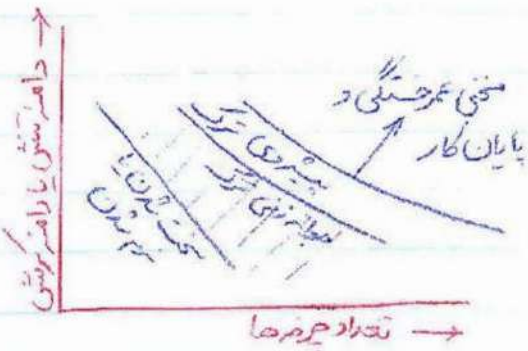 دامنه تنش یا دامنه کرنش
منحنی عمر خستگی و
پایان کار
پیشروی ترک
جوانه زنی ترک
سخت شدن یا
نرم شدن
تعداد چرخه‌ها